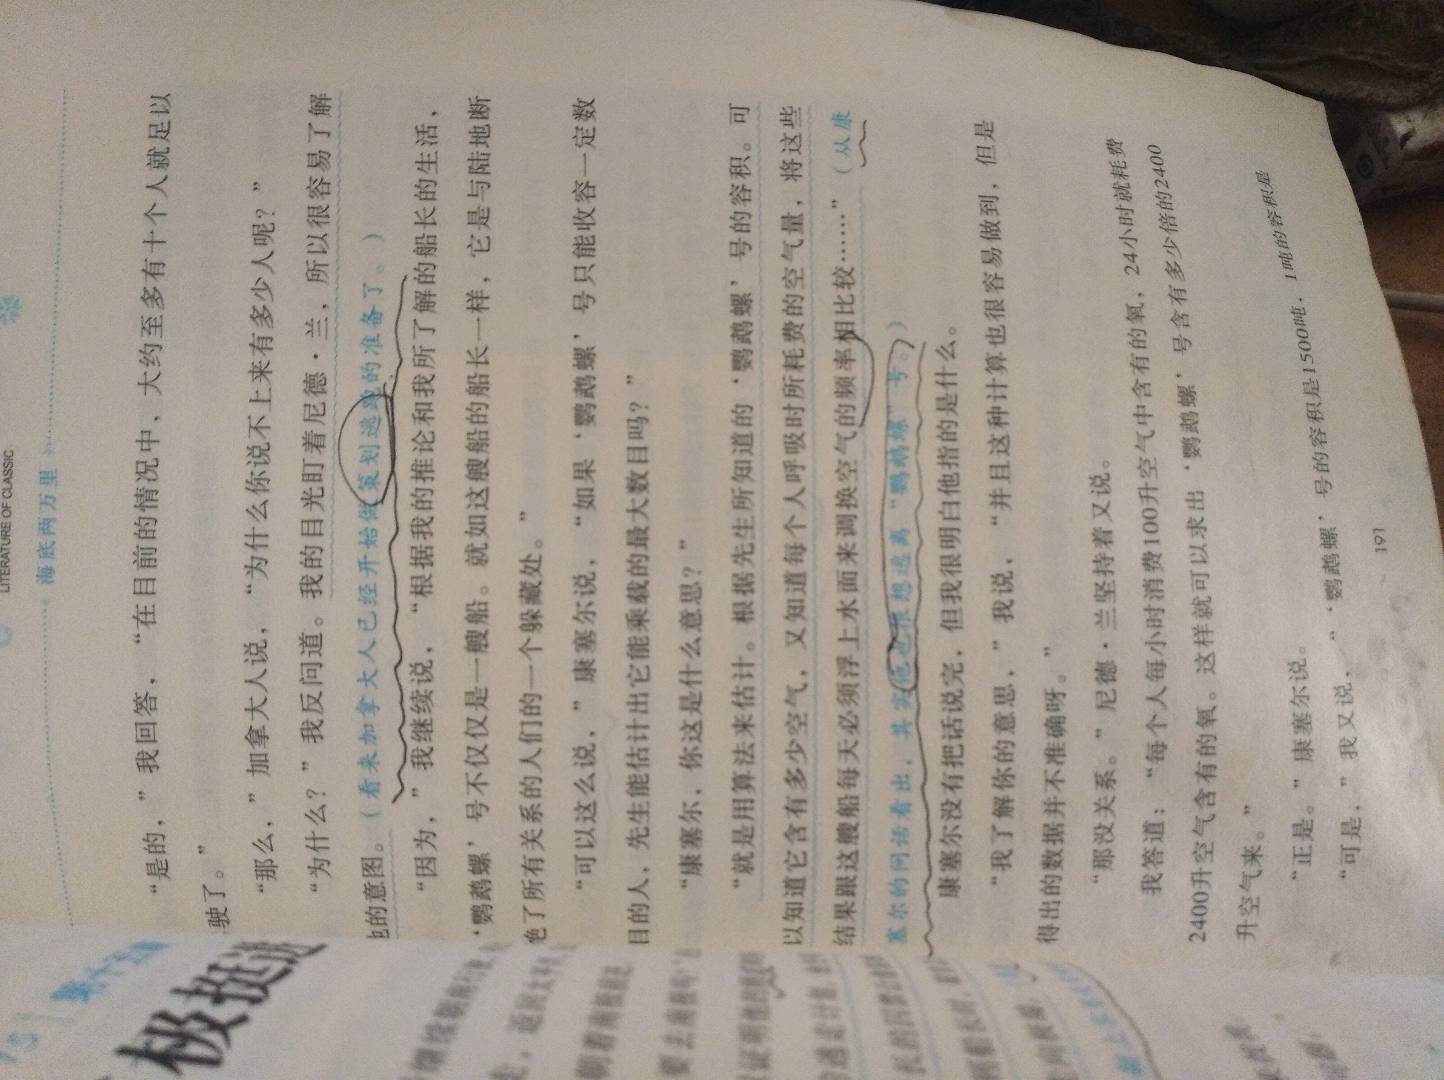 LITERATURE OF CLASSIC
海底两万里
“是的，”我回答，“在目前的情况中，大约至多有十个人就足以
驶了。”
“那么，”加拿大人说，“为什么你说不上来有多少人呢？”
“为什么？”我反问道。我的目光盯着尼德·兰，所以很容易了解
的意图。（看来加拿大人已经开始做策划逃跑的准备了。）
“因为，”我继续说，“根据我的推论和我所了解的船长的生活，
‘鹦鹉螺’号不仅仅是一艘船。就如这艘船的船长一样，它是与陆地断
绝了所有关系的人们的一个躲藏处。”
“可以这么说，”康塞尔说，“如果‘鹦鹉螺’号只能收容一定数
目的人，先生能估计出它能乘载的最大数目吗？”
“康塞尔，你这是什么意思？”
“就是用算法来估计。根据先生所知道的‘鹦鹉螺’号的容积。可
以知道它含有多少空气，又知道每个人呼吸时所耗费的空气量，将这些
结果跟这艘船每天必须浮上水面来调换空气的频率相比较……”（从康
塞尔的问话看出，其实他也很想逃离“鹦鹉螺”号。）
康塞尔没有把话说完，但我很明白他指的是什么。
“我了解你的意思，”我说，“并且这种计算也很容易做到，但是
得出的数据并不准确呀。”
“那没关系。”尼德·兰坚持着又说。
我答道：“每个人每小时消费100升空气中含有的氧，24小时就耗费
2400升空气含有的氧。这样就可以求出‘鹦鹉螺’号含有多少倍的2400
升空气来。”
“正是。”康塞尔说。
“可是，”我又说，“‘鹦鹉螺’号的容积是1500吨，1吨的容积是
191
极挺进